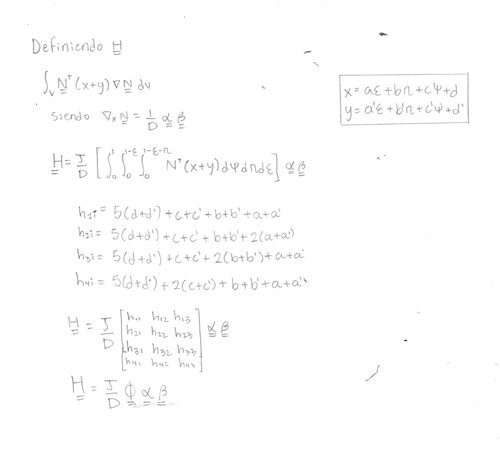 Definiendo H
∫ᵥ Nᵀ(x+y) ∇N dv
x = aε+bn+cψ+d
y = a'ε+b'n+c'ψ+d'
siendo ∇ₓN = 1/D α β
H = J/D [∫₀¹ ∫₀^1-ε ∫₀^1-ε-n Nᵀ(x+y) dψ dn dε] α β
h₁ᵢ = 5(d+d') + c+c' + b+b' + a+a'
h₂ᵢ = 5(d+d') + c+c' + b+b' + 2(a+a')
h₃ᵢ = 5(d+d') + c+c' + 2(b+b') + a+a'
h₄ᵢ = 5(d+d') + 2(c+c') + b+b' + a+a'
H = J/D [h₁₁ h₁₂ h₁₃
h₂₁ h₂₂ h₂₃
h₃₁ h₃₂ h₃₃
h₄₁ h₄₂ h₄₃] α β
H = J/D ϕ α β